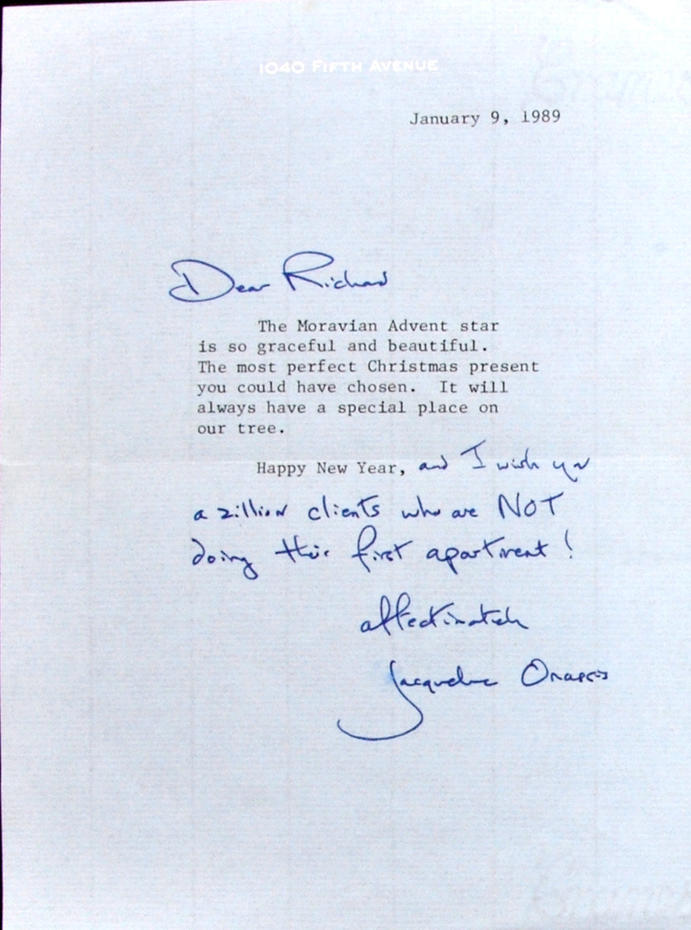 1040 FIFTH AVENUE
January 9, 1989
Dear Richard
The Moravian Advent star
is so graceful and beautiful.
The most perfect Christmas present
you could have chosen. It will
always have a special place on
our tree.
Happy New Year, and I wish you
a zillion clients who are NOT
doing their first apartment!
affectionately
Jacqueline Onassis